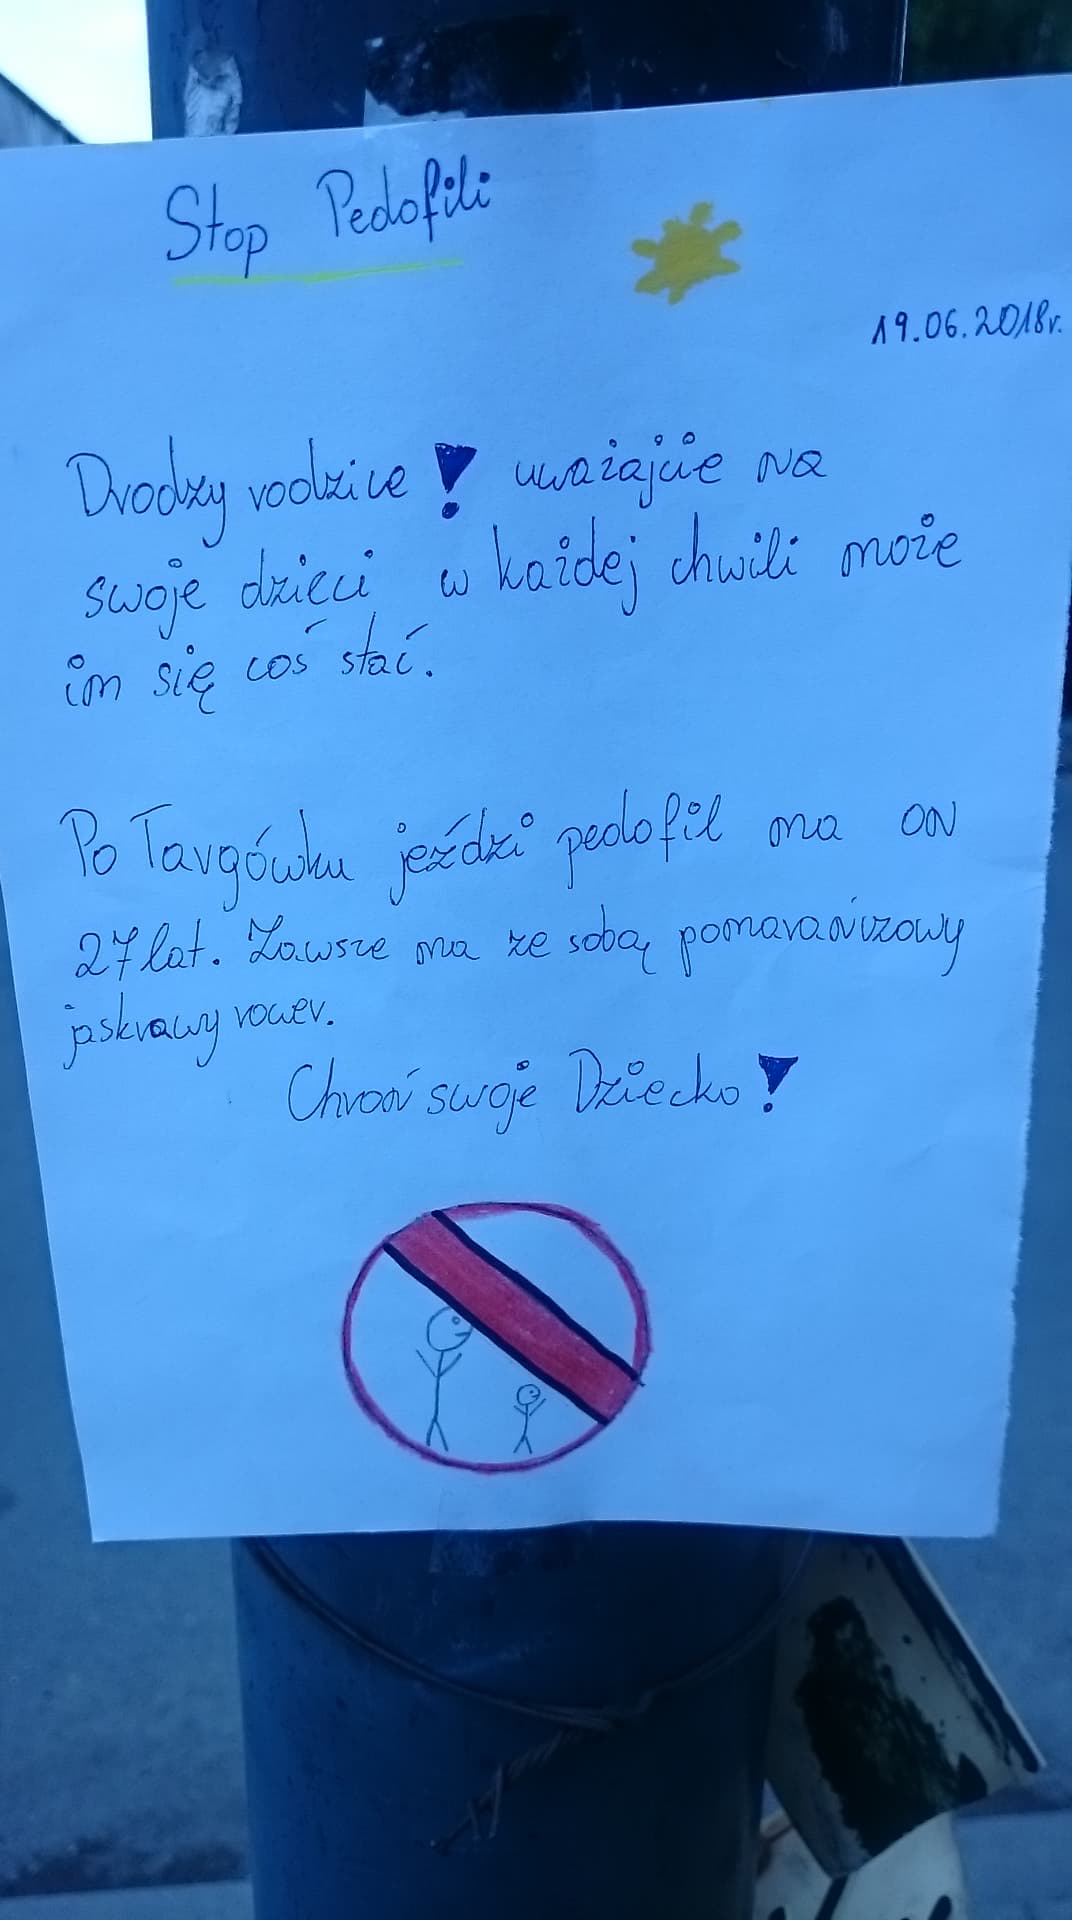 Stop Pedofili
19.06.2018r.
Drodzy rodzice! uważajcie na
swoje dzieci w każdej chwili może
im się coś stać.
Po Targówku jeździ pedofil ma on
27 lat. Zawsze ma ze sobą pomarańczowy
jaskrawy rower.
Chroń swoje Dziecko!